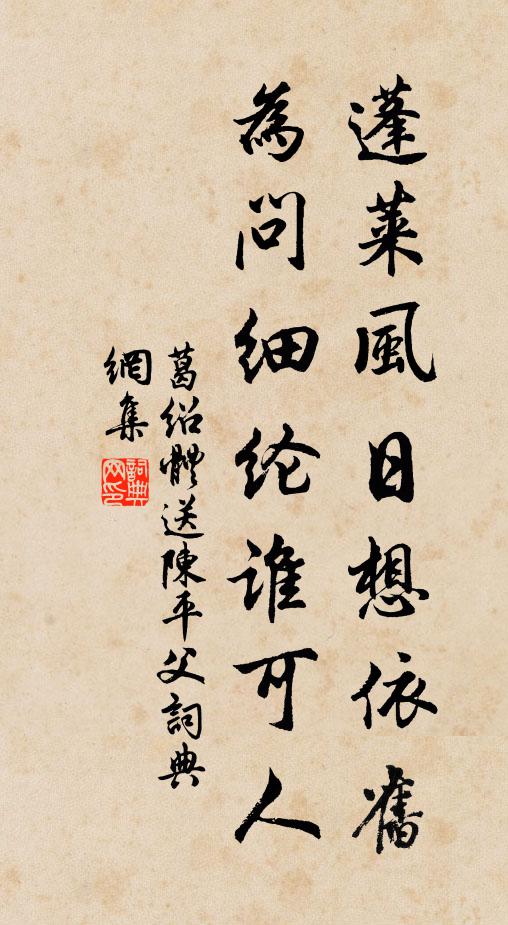 蓬萊風日想依舊
為問细纶谁可人
葛绍體送陳平父詞典
網集
詞典网印